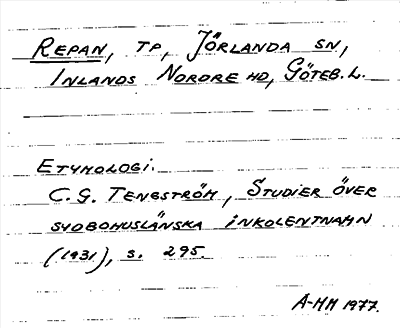 REPAN, TP, JÖRLANDA SN,
INLANDS NORDRE HD, GÖTEB. L.
ETYMOLOGI.
C. G. TENGSTRÖM, STUDIER ÖVER
SYDBOHUSLÄNSKA INKOLENTNAMN
(1931), S. 295.
A-MM 1977.